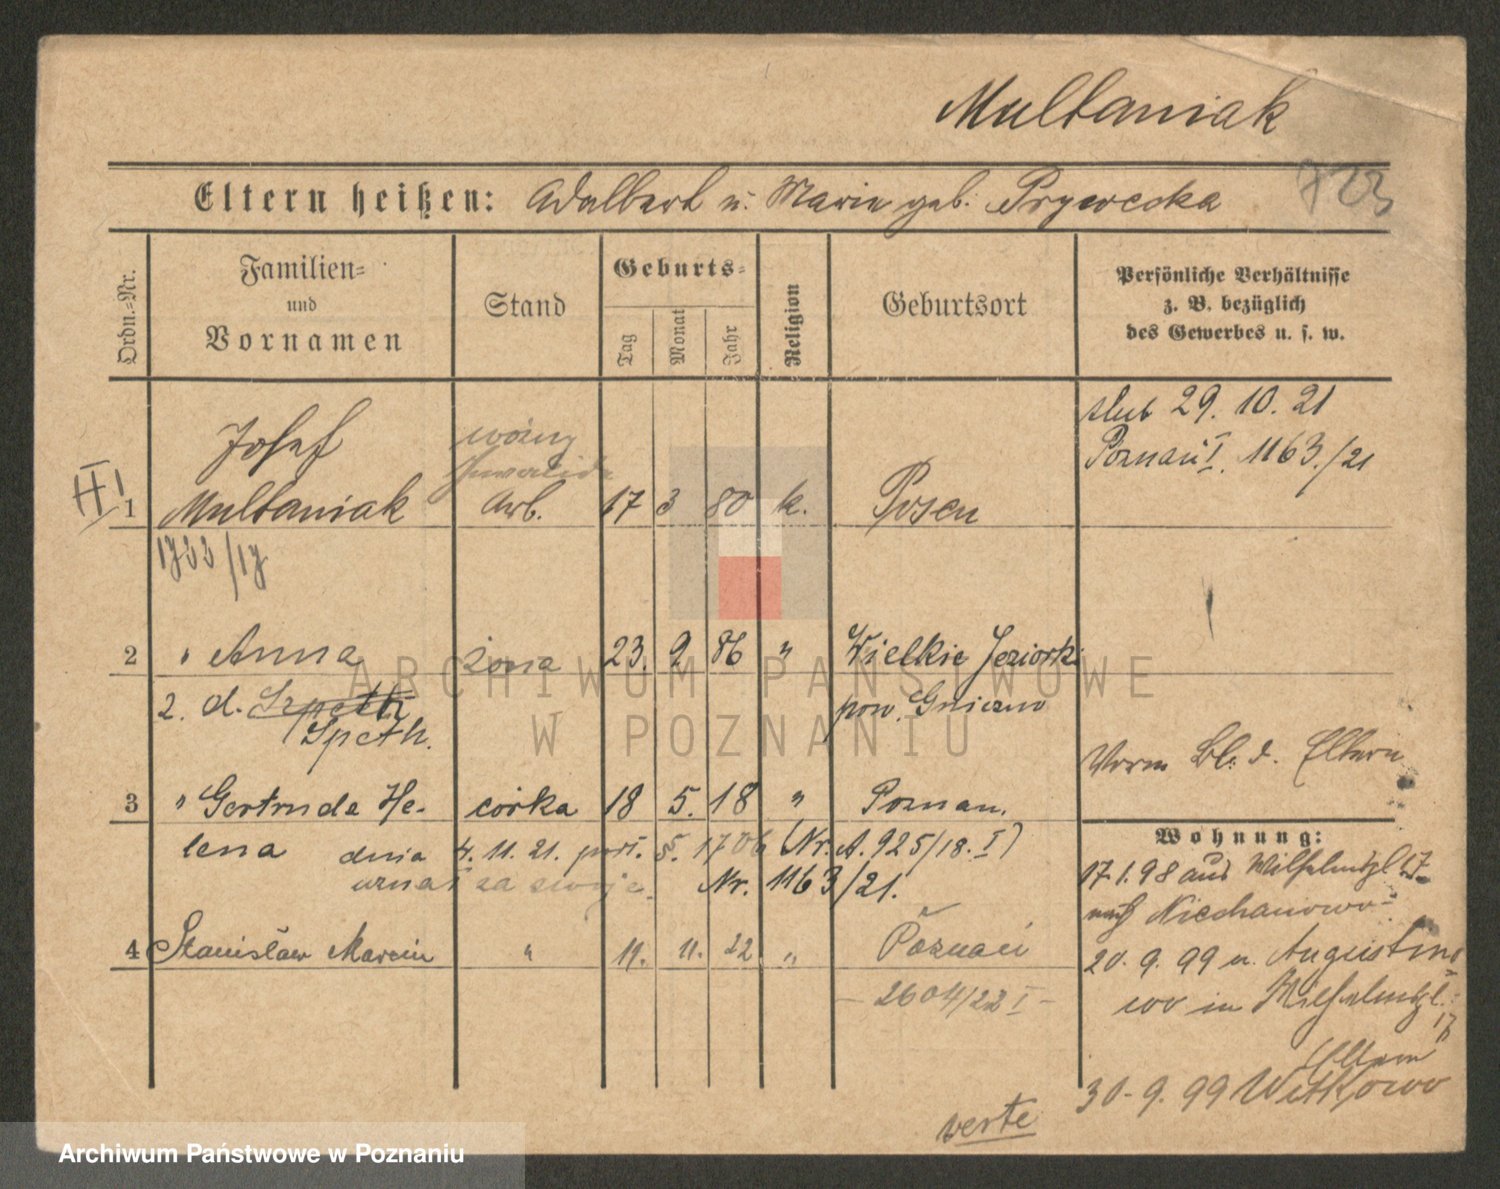 Multaniak
723
Eltern heißen: Adalbert u. Marie geb. Prywecka
Ordn.-Nr.
Familien-
und
Vornamen
Stand
Geburts-
Tag
Monat
Jahr
Religion
Geburtsort
Persönliche Verhältnisse
z. B. bezüglich
des Gewerbes u. s. w.
ślub 29. 10. 21
Poznań I. 1163./21
Josef
woźny
Inwalida
II! 1 Multaniak Arb. 17 3 80 k. Posen
1722/17
2 " Anna żona 23. 9 86 " Wielkie Jeziorki
2. d. Szpeth pow. Gniezno
Speth.
Vorm Bl. d. Eltern
3 " Gertruda He- córka 18 5. 18 " Poznań.
lena dnia 4. 11. 21. 1706 (Nr. A. 925/18. I)
uznał za swoje. Nr. 1163/21.
4 Stanisław Marcin " 11. 11. 22 " Poznań
- 2604/22 I -
Wohnung:
17.1.98 aus Wilhelmspl. 17
nach Niechanowo
20. 9. 99 v. Augustino
wo in Wilhelmspl.
17
Eltern
30. 9. 99 Witkowo
verte
ARCHIWUM PAŃSTWOWE
W POZNANIU
Archiwum Państwowe w Poznaniu